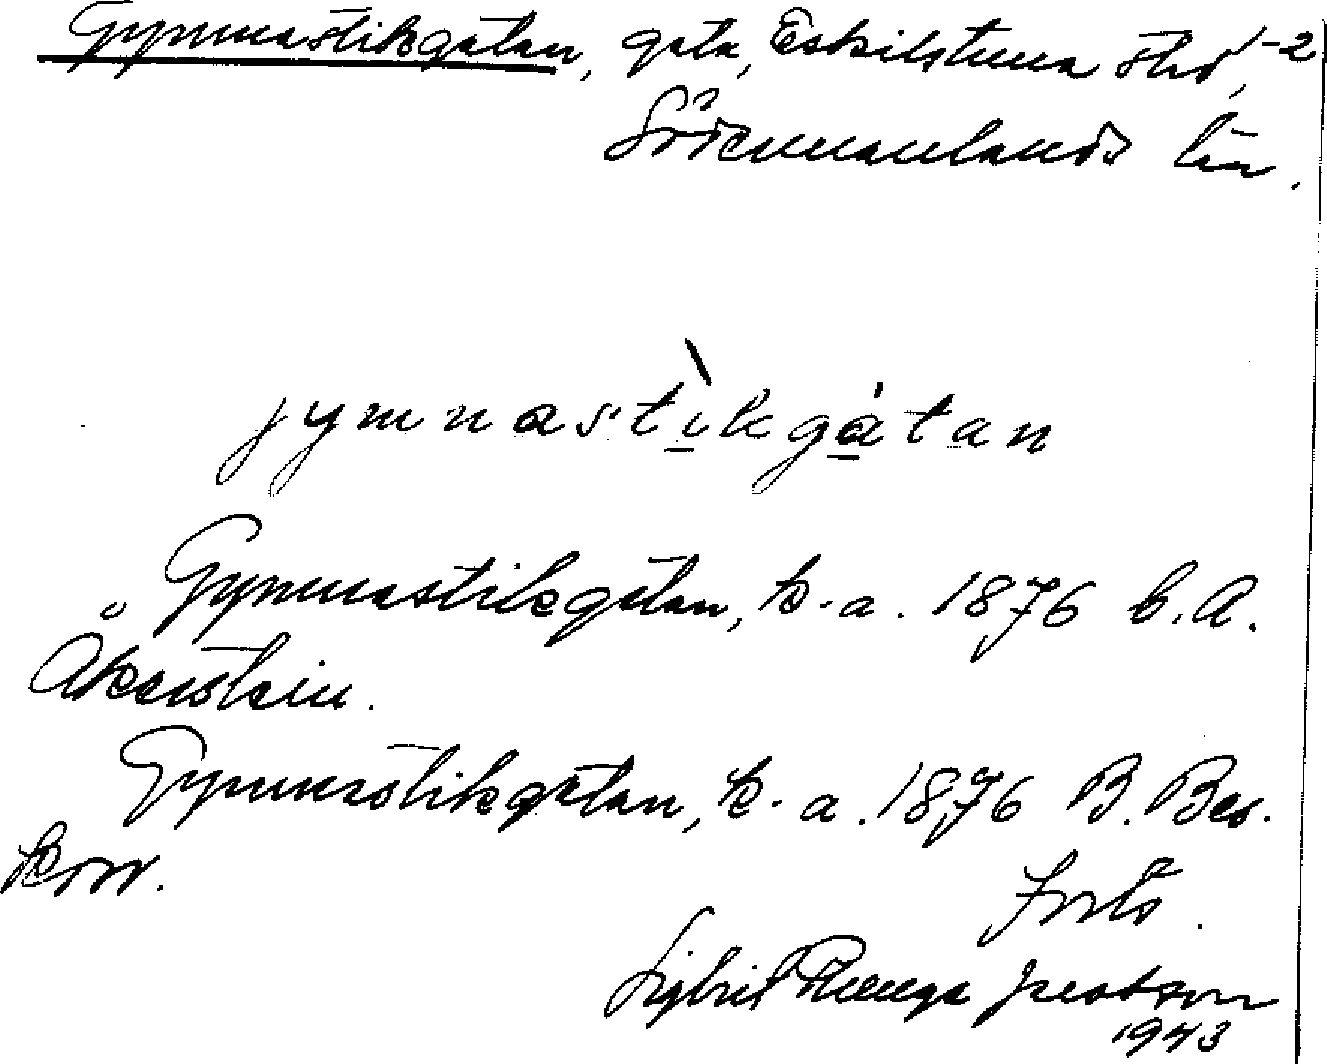 Gymnastikgatan, gata, Eskilstuna stad, 1-2
Södermanlands län.
jymnastìkgátan
Gymnastikgatan, k.a. 1876 b. A.
Åkerstein.
Gymnastikgatan, k.a. 1876 B. Bes.
korr.
Forts.
Sigbrit Plænge Jacobson
1943